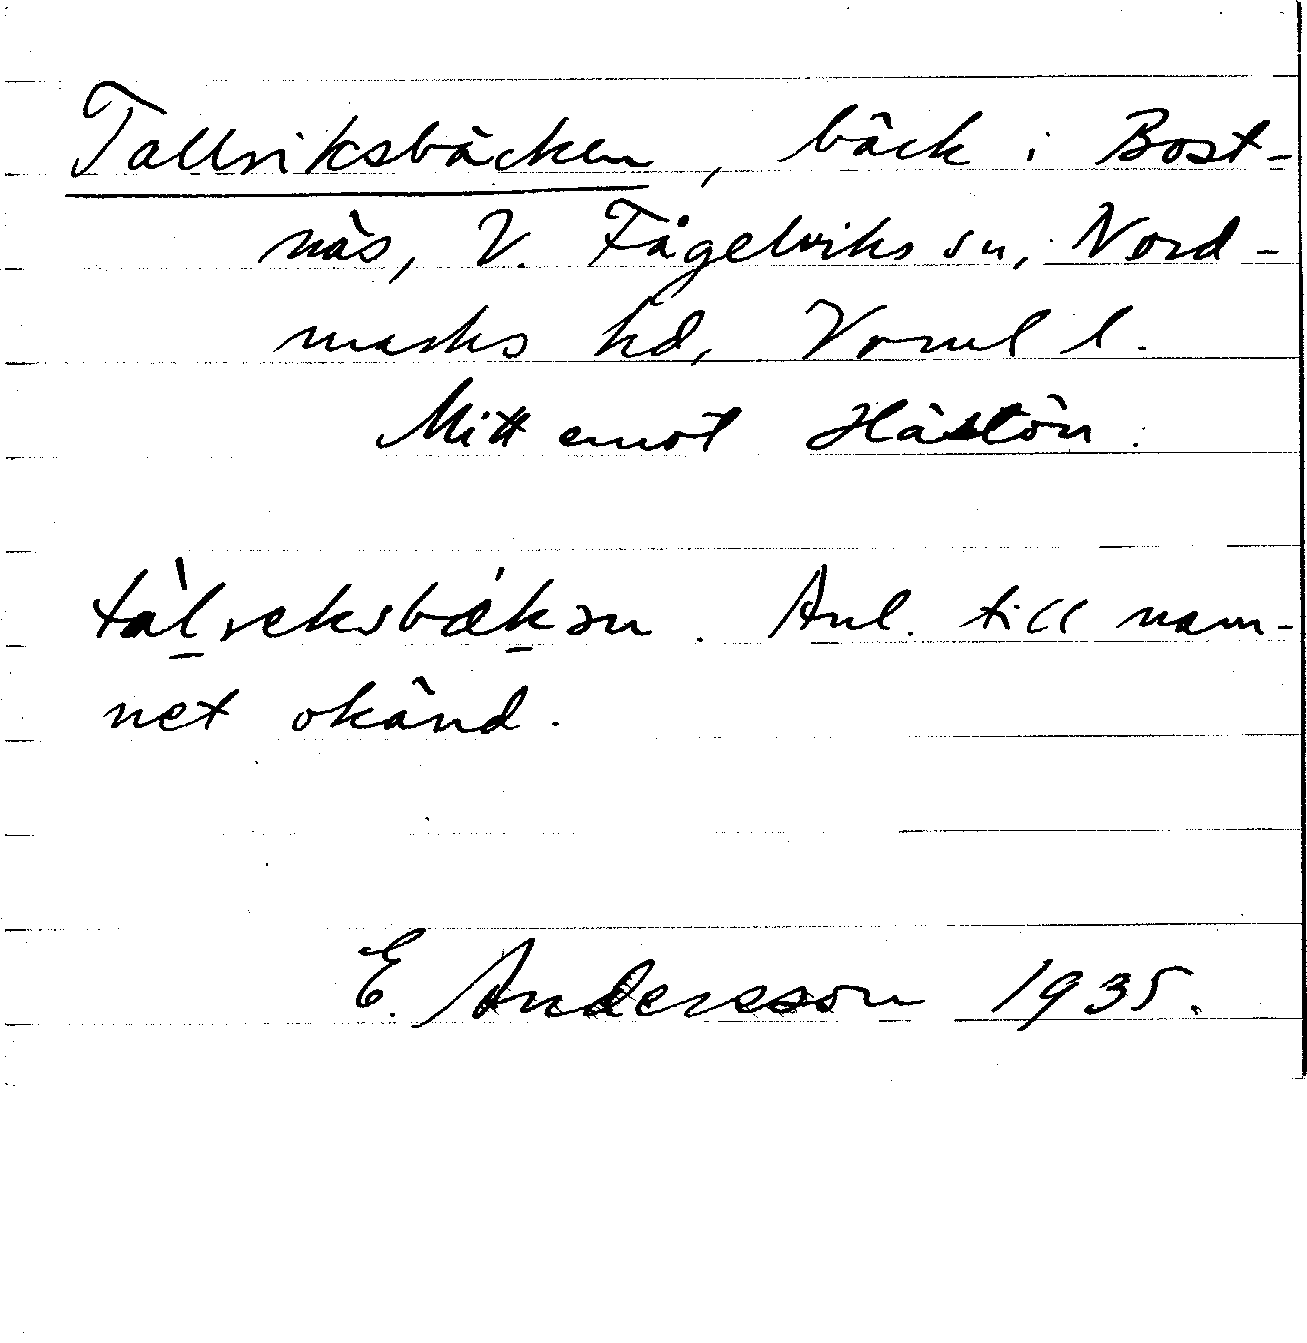 Tallriksbäcken, bäck i Bost-
näs, V. Fågelviks sn, Nord-
marks hd, Vrml l.
Mitt emot Hästön.
tàl̠reksbǽk̠ən. Anl. till nam-
net okänd.
E. Andersson 1935.